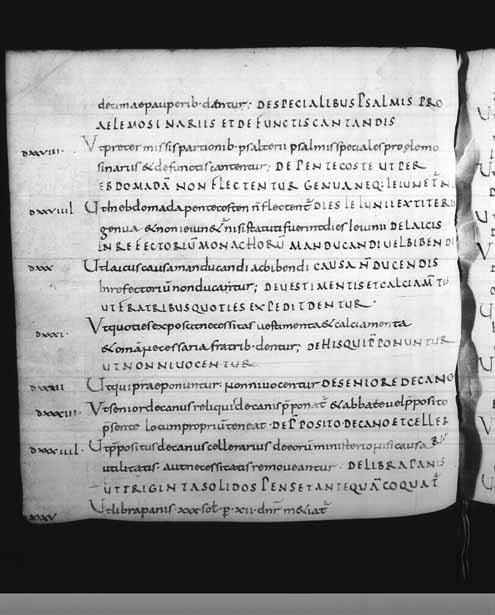 decimae pauperib· dentur; DE SPECIALIBUS PSALMIS PRO
AELEMOSINARIIS ET DEFUNCTIS CANTANDIS
DXXVIII· Ut preter missis partionib· psalterii psalmi speciales pro elemo
sinariis & defunctis cantentur; DE PENTECOSTE UT PER
EBDOMADĀ NON FLECTENTUR GENUA NEQ· IEIUNET̄
DXXVIIII Ut in ebdomada pentecosten n̄ flectent̄
genua & non ieiun& n̄ si statuti fuerint dies ieiunii DE LAICIS
IN REFECTORIŪ MONACHORŪ MANDUCANDI UEL BIBENDI
DXXX Ut laicus causa manducandi ac bibendi CAUSA N̄ DUCENDIS
In refectoriū non ducantur; DE UESTIMENTIS ET CALCIAM̄
UT FRATRIBUS QUOTIES EXPEDIT DENTUR·
DXXXI· Ut quoties exposcit necessitas uestimenta & calciamenta
& om̄a necessaria fratrib· dentur; DE HIS QUI P̄PONUNTUR
UT NONNI UOCENTUR
DXXXII Ut qui praeponuntur· nonni uocentur DE SENIORE DECANO
DXXXIII· Ut senior decanus reliqui decanis p̄ponat̄ & abbate uel p̄posito
p̄sente locum propriū teneat· DE P̄POSITO DECANO ET CELLER
DXXXIIII· Ut p̄positus decanus cellerarius de eorū ministerio nisi causa
utilitatis· aut necessitatis remoueantur· DE LIBRA PANIS
UT TRIGINTA SOLIDOS PENSET ANTEQUĀ COQUAT̄
DXXXV Ut libra panis· xxx sol· p· xii· dnr̄ m&iat̄